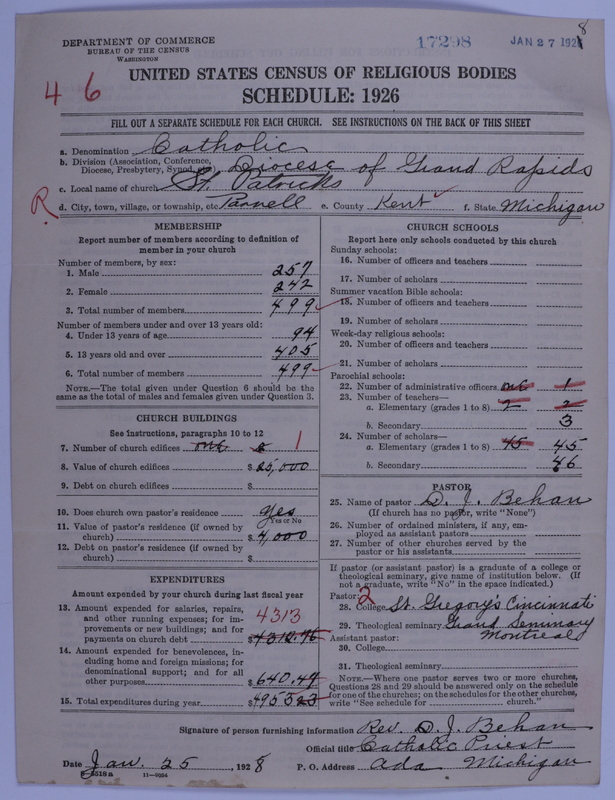 8
DEPARTMENT OF COMMERCE
BUREAU OF THE CENSUS
WASHINGTON
17298
JAN 27 192
4 6
UNITED STATES CENSUS OF RELIGIOUS BODIES
SCHEDULE: 1926
FILL OUT A SEPARATE SCHEDULE FOR EACH CHURCH. SEE INSTRUCTIONS ON THE BACK OF THIS SHEET
a. Denomination Catholic
b. Division (Association, Conference, Diocese, Presbytery, Synod, etc.) Diocese of Grand Rapids
c. Local name of church St. Patricks
R d. City, town, village, or township, etc. Parnell e. County Kent f. State Michigan
MEMBERSHIP
Report number of members according to definition of
member in your church
Number of members, by sex:
1. Male 257
2. Female 242
3. Total number of members 499
Number of members under and over 13 years old:
4. Under 13 years of age 94
5. 13 years old and over 405
6. Total number of members 499
NOTE.—The total given under Question 6 should be
same as the total of males and females given under Question 3.
CHURCH BUILDINGS
See instructions, paragraphs 10 to 12
7. Number of church edifices one 1
8. Value of church edifices $ 25,000
9. Debt on church edifices $
10. Does church own pastor's residence Yes
Yes or No
11. Value of pastor's residence (if owned by
church) $ 4,000
12. Debt on pastor's residence (if owned by
church) $
EXPENDITURES
Amount expended by your church during last fiscal year
13. Amount expended for salaries, repairs,
and other running expenses; for im-
provements or new buildings; and for
payments on church debt $ 4312.76 4313
14. Amount expended for benevolences, in-
cluding home and foreign missions; for
denominational support; and for all
other purposes $ 640.47
15. Total expenditures during year $ 4953 23
CHURCH SCHOOLS
Report here only schools conducted by this church
Sunday schools:
16. Number of officers and teachers
17. Number of scholars
Summer vacation Bible schools:
18. Number of officers and teachers
19. Number of scholars
Week-day religious schools:
20. Number of officers and teachers
21. Number of scholars
Parochial schools:
22. Number of administrative officers one 1
23. Number of teachers—
a. Elementary (grades 1 to 8) 2 2
b. Secondary 3
24. Number of scholars—
a. Elementary (grades 1 to 8) 45 45
b. Secondary 46
PASTOR
25. Name of pastor D. J. Behan
(If church has no pastor, write "None")
26. Number of ordained ministers, if any, em-
ployed as assistant pastors
27. Number of other churches served by the
pastor or his assistants
If pastor (or assistant pastor) is a graduate of a college or
theological seminary, give name of institution below. (If
not a graduate, write "No" in the space indicated.)
Pastor: 2
28. College St. Gregory's Cincinnati
29. Theological seminary Grand Seminary
Montreal
Assistant pastor:
30. College
31. Theological seminary
NOTE.—Where one pastor serves two or more churches,
Questions 28 and 29 should be answered only on the schedule
for one of the churches; on the schedules for the other churches,
write "See schedule for church."
Signature of person furnishing information Rev. D. J. Behan
Official title Catholic Priest
Date Jan. 25, 1928 P. O. Address Ada Michigan
11—9264